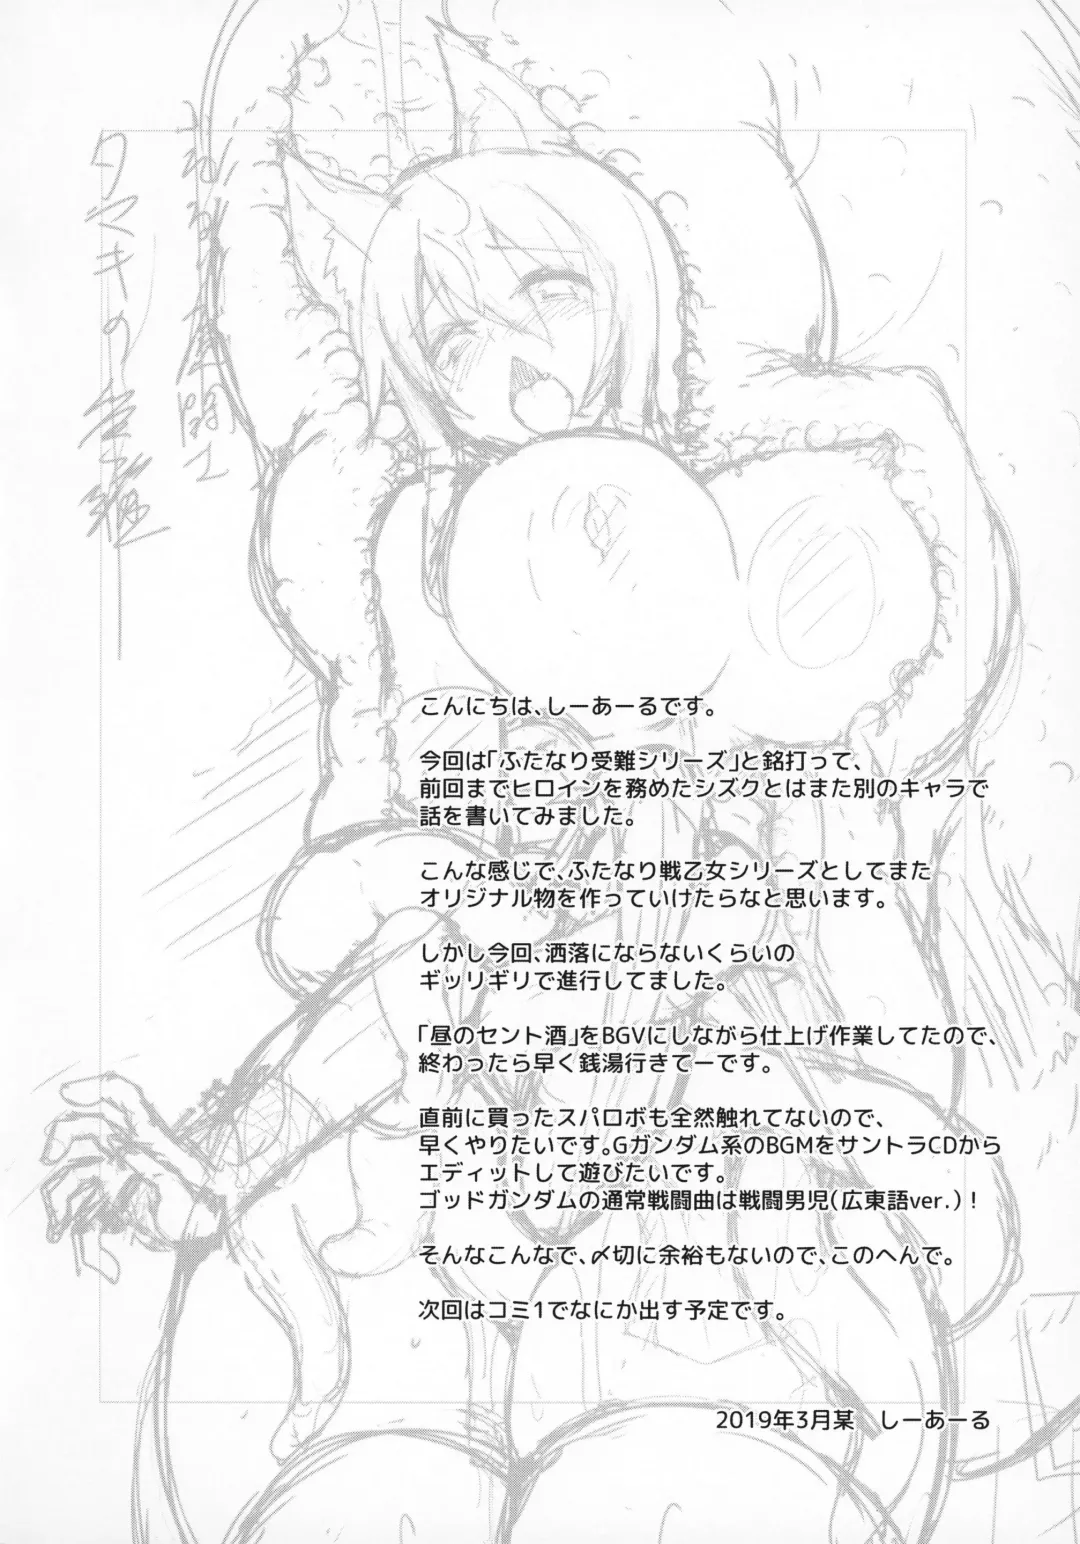 こんにちは、しーあーるです。
今回は「ふたなり受難シリーズ」と銘打って、
前回までヒロインを務めたシズクとはまた別のキャラで
話を書いてみました。
こんな感じで、ふたなり戦乙女シリーズとしてまた
オリジナル物を作っていけたらなと思います。
しかし今回、洒落にならないくらいの
ギッリギリで進行してました。
「昼のセント酒」をBGVにしながら仕上げ作業してたので、
終わったら早く銭湯行きてーです。
直前に買ったスパロボも全然触れてないので、
早くやりたいです。Gガンダム系のBGMをサントラCDから
エディットして遊びたいです。
ゴッドガンダムの通常戦闘曲は戦闘男児(広東語ver.)!
そんなこんなで、〆切に余裕もないので、このへんで。
次回はコミ1でなにか出す予定です。
2019年3月某　しーあーる
闘士
タマキの受難